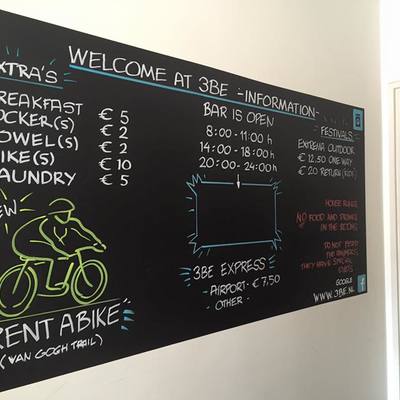 WELCOME AT 3BE - INFORMATION -
XTRA'S
REAKFAST € 5
OCKER(S) € 2
OWEL(S) € 2
IKE(S) € 10
AUNDRY € 5
EW
RENT A BIKE
(VAN GOGH TRAIL)
BAR IS OPEN
8:00 - 11:00 h
14:00 - 18:00 h
20:00 - 24:00 h
3BE EXPRESS
- AIRPORT - € 7,50
- OTHER -
FESTIVALS
EXTREMA OUTDOOR
€ 12.50 ONE WAY
€ 20 RETURN
HOUSE RULES
NO FOOD AND DRINKS
IN THE ROOMS
DO NOT FEED
THE
THEY HAVE SPECIAL
DIETS
GOOGLE
WWW.3BE.NL
f